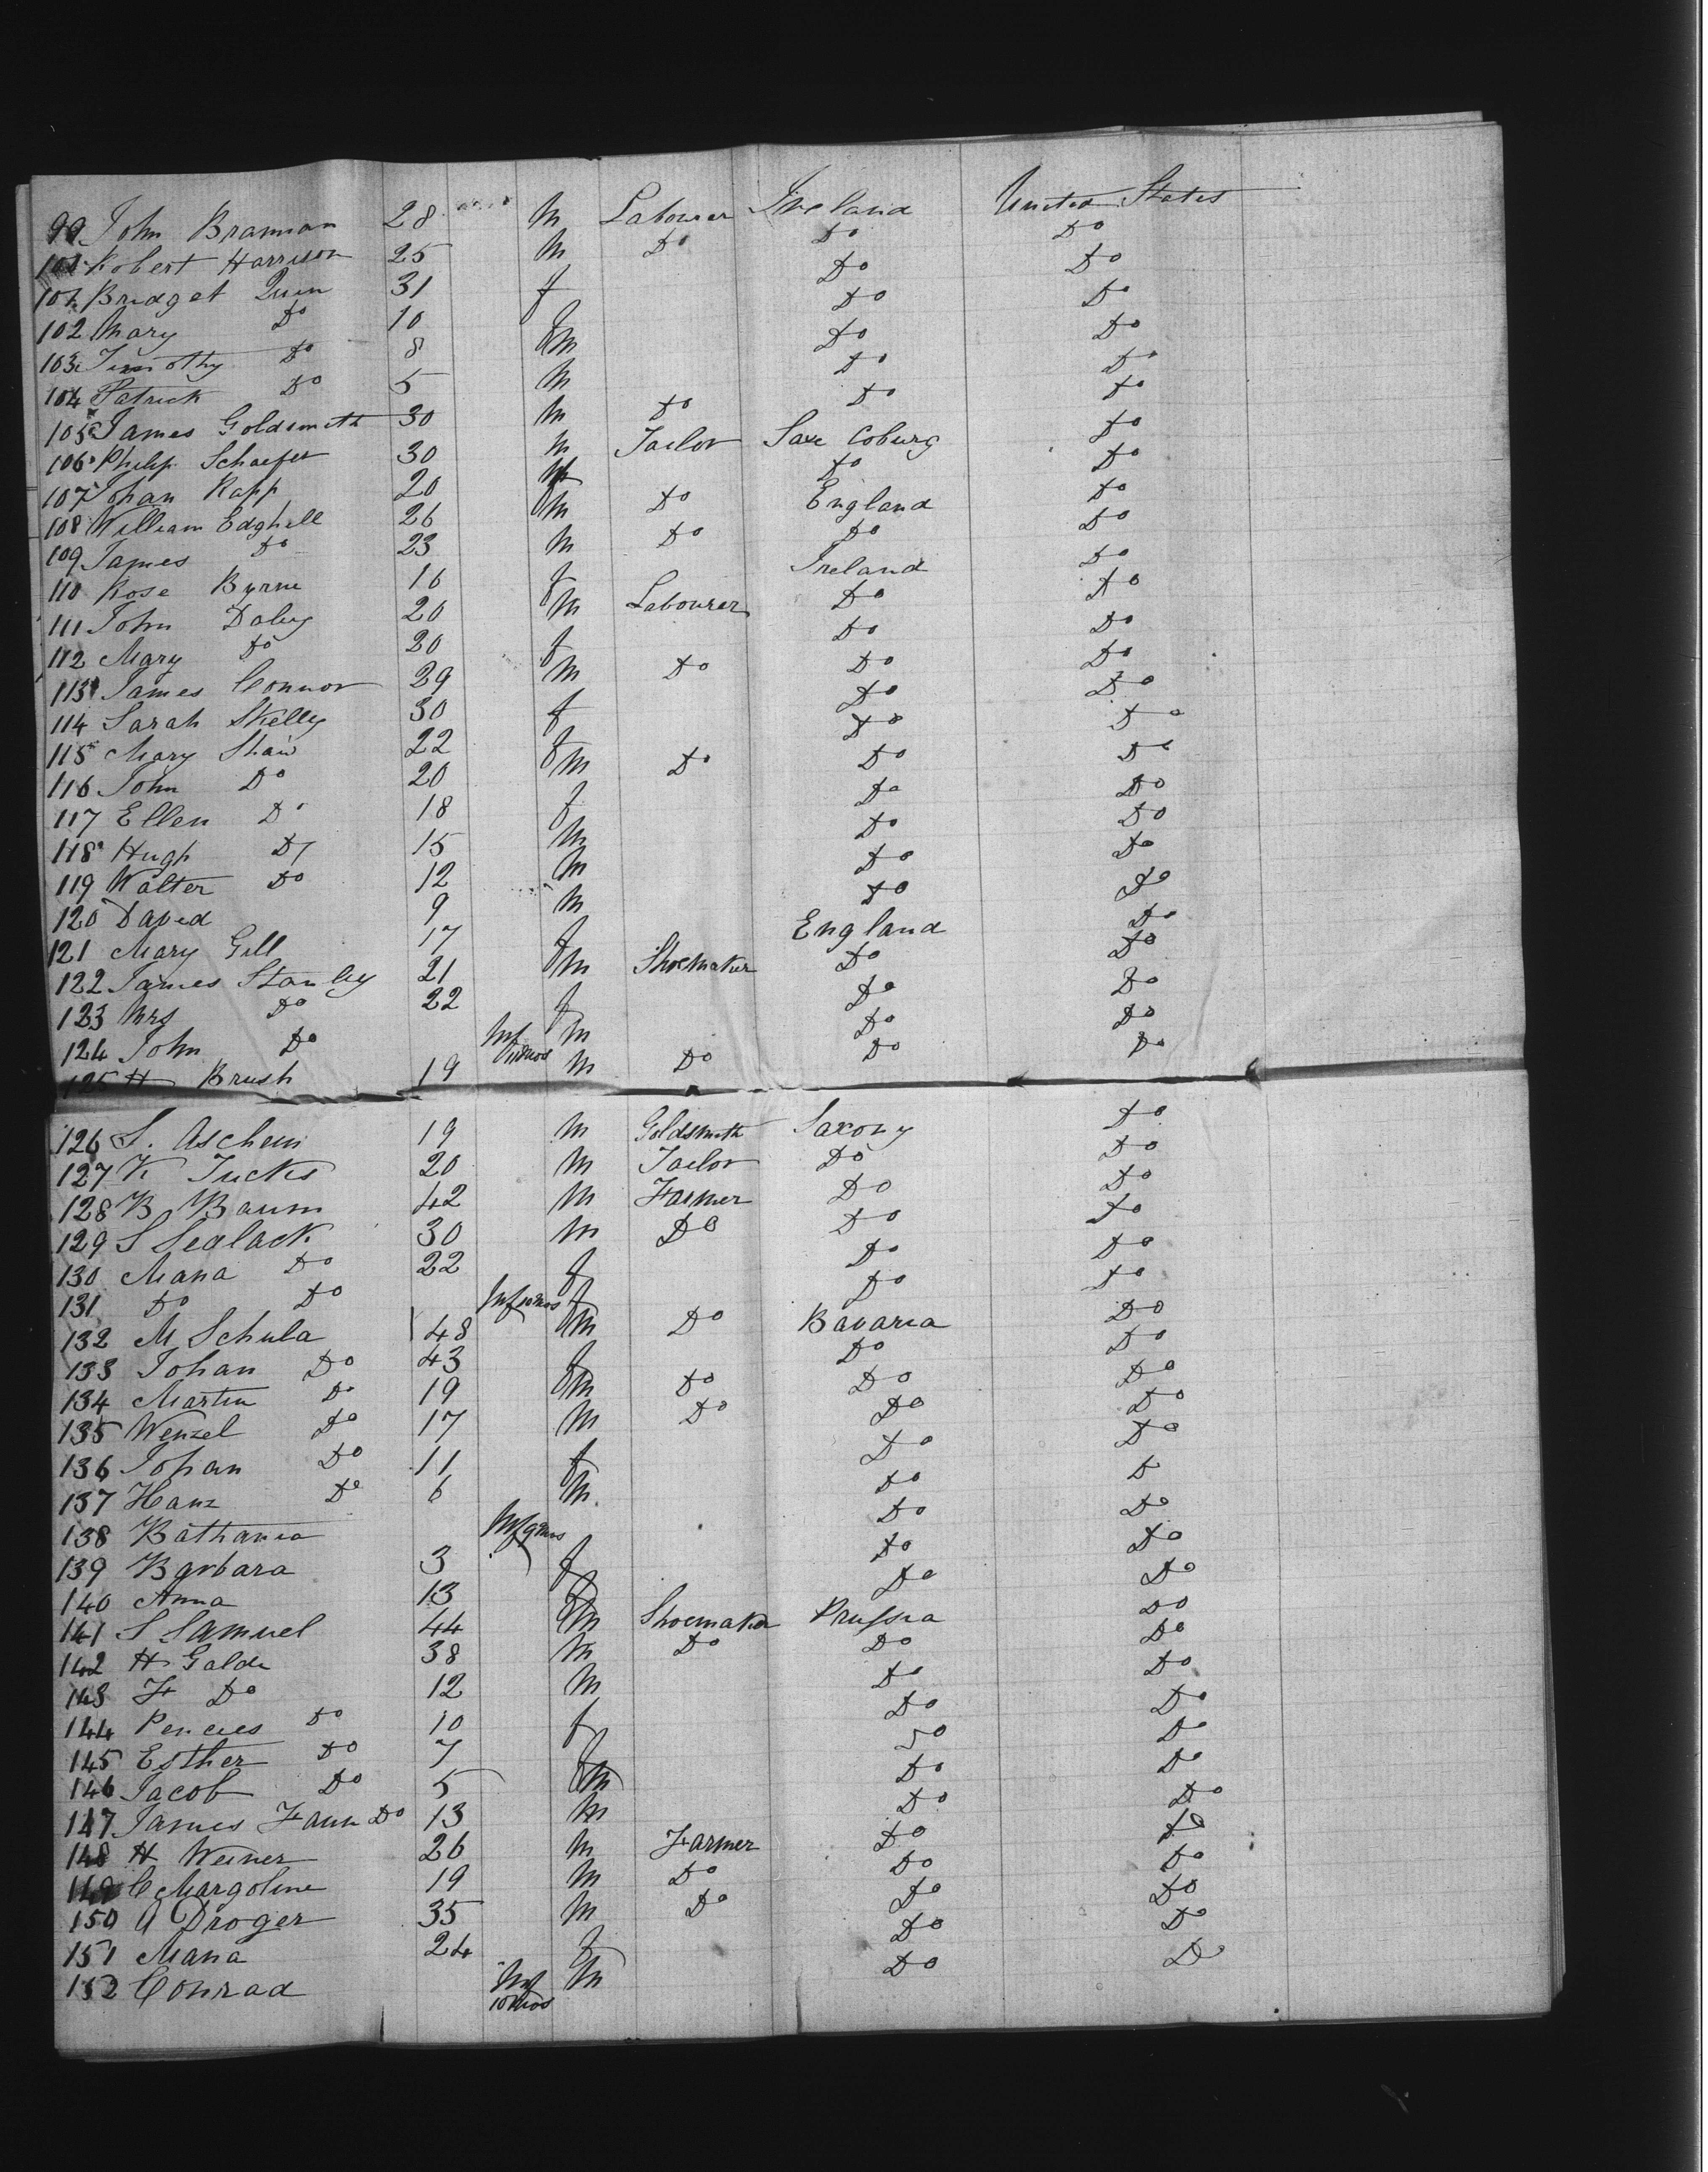 99 John Brannan 28 M Labourer Ireland United States
100 Robert Harrison 25 M Do Do Do
101 Bridget Quin 31 f Do Do
102 Mary Do 10 f Do Do
103 Timothy Do 8 M Do Do
104 Patrick Do 5 M Do Do
105 James Goldsmith 30 M Do Do Do
106 Philip Schaefer 30 M Tailor Saxe Coburg Do
107 Johan Rapp 20 Do Do
108 William Edghill 26 M Do England Do
109 James Do 23 M Do Do Do
110 Rose Byrne 16 f Ireland Do
111 John Daley 20 M Labourer Do Do
112 Mary Do 20 f Do Do
113 James Connor 29 M Do Do Do
114 Sarah Skelly 30 f Do Do
115 Mary Shaw 22 f Do Do
116 John Do 20 M Do Do Do
117 Ellen Do 18 f Do Do
118 Hugh Do 15 M Do Do
119 Walter Do 12 M Do Do
120 David 9 M Do Do
121 Mary Gill 17 f England Do
122 James Stanley 21 M Shoemaker Do Do
123 Mrs Do 22 f Do Do
124 John Do Inf mos M Do Do
125 H Brush 19 M Do Do Do
126 S. Aschem 19 M Goldsmith Saxony Do
127 K Tucks 20 M Tailor Do Do
128 B Baum 42 M Farmer Do Do
129 S Sealack 30 M Do Do Do
130 Maria Do 22 f Do Do
131 Do Do Inf 10 mos f Do Do
132 M Schula 48 M Do Bavaria Do
133 Johan Do 43 f Do Do
134 Martin Do 19 M Do Do Do
135 Wenzel Do 17 M Do Do Do
136 Johan Do 11 f Do Do
137 Hanz Do 6 M Do D
138 Bathania Inf 9 mos Do Do
139 Barbara 3 f Do Do
140 Anna 13 f Do Do
141 S Samuel 44 M Shoemaker Prussia Do
142 H Galde 38 M Do Do Do
143 F Do 12 M Do Do
144 Do 10 f Do Do
145 Esther Do 7 f Do Do
146 Jacob Do 5 M Do Do
147 James Faun Do 13 M Do Do
148 H Weiner 26 M Farmer Do Do
149 C Margoline 19 M Do Do Do
150 A Droger 35 M Do Do Do
151 Maria 24 f Do Do
152 Conrad Inf 10 mos M Do Do